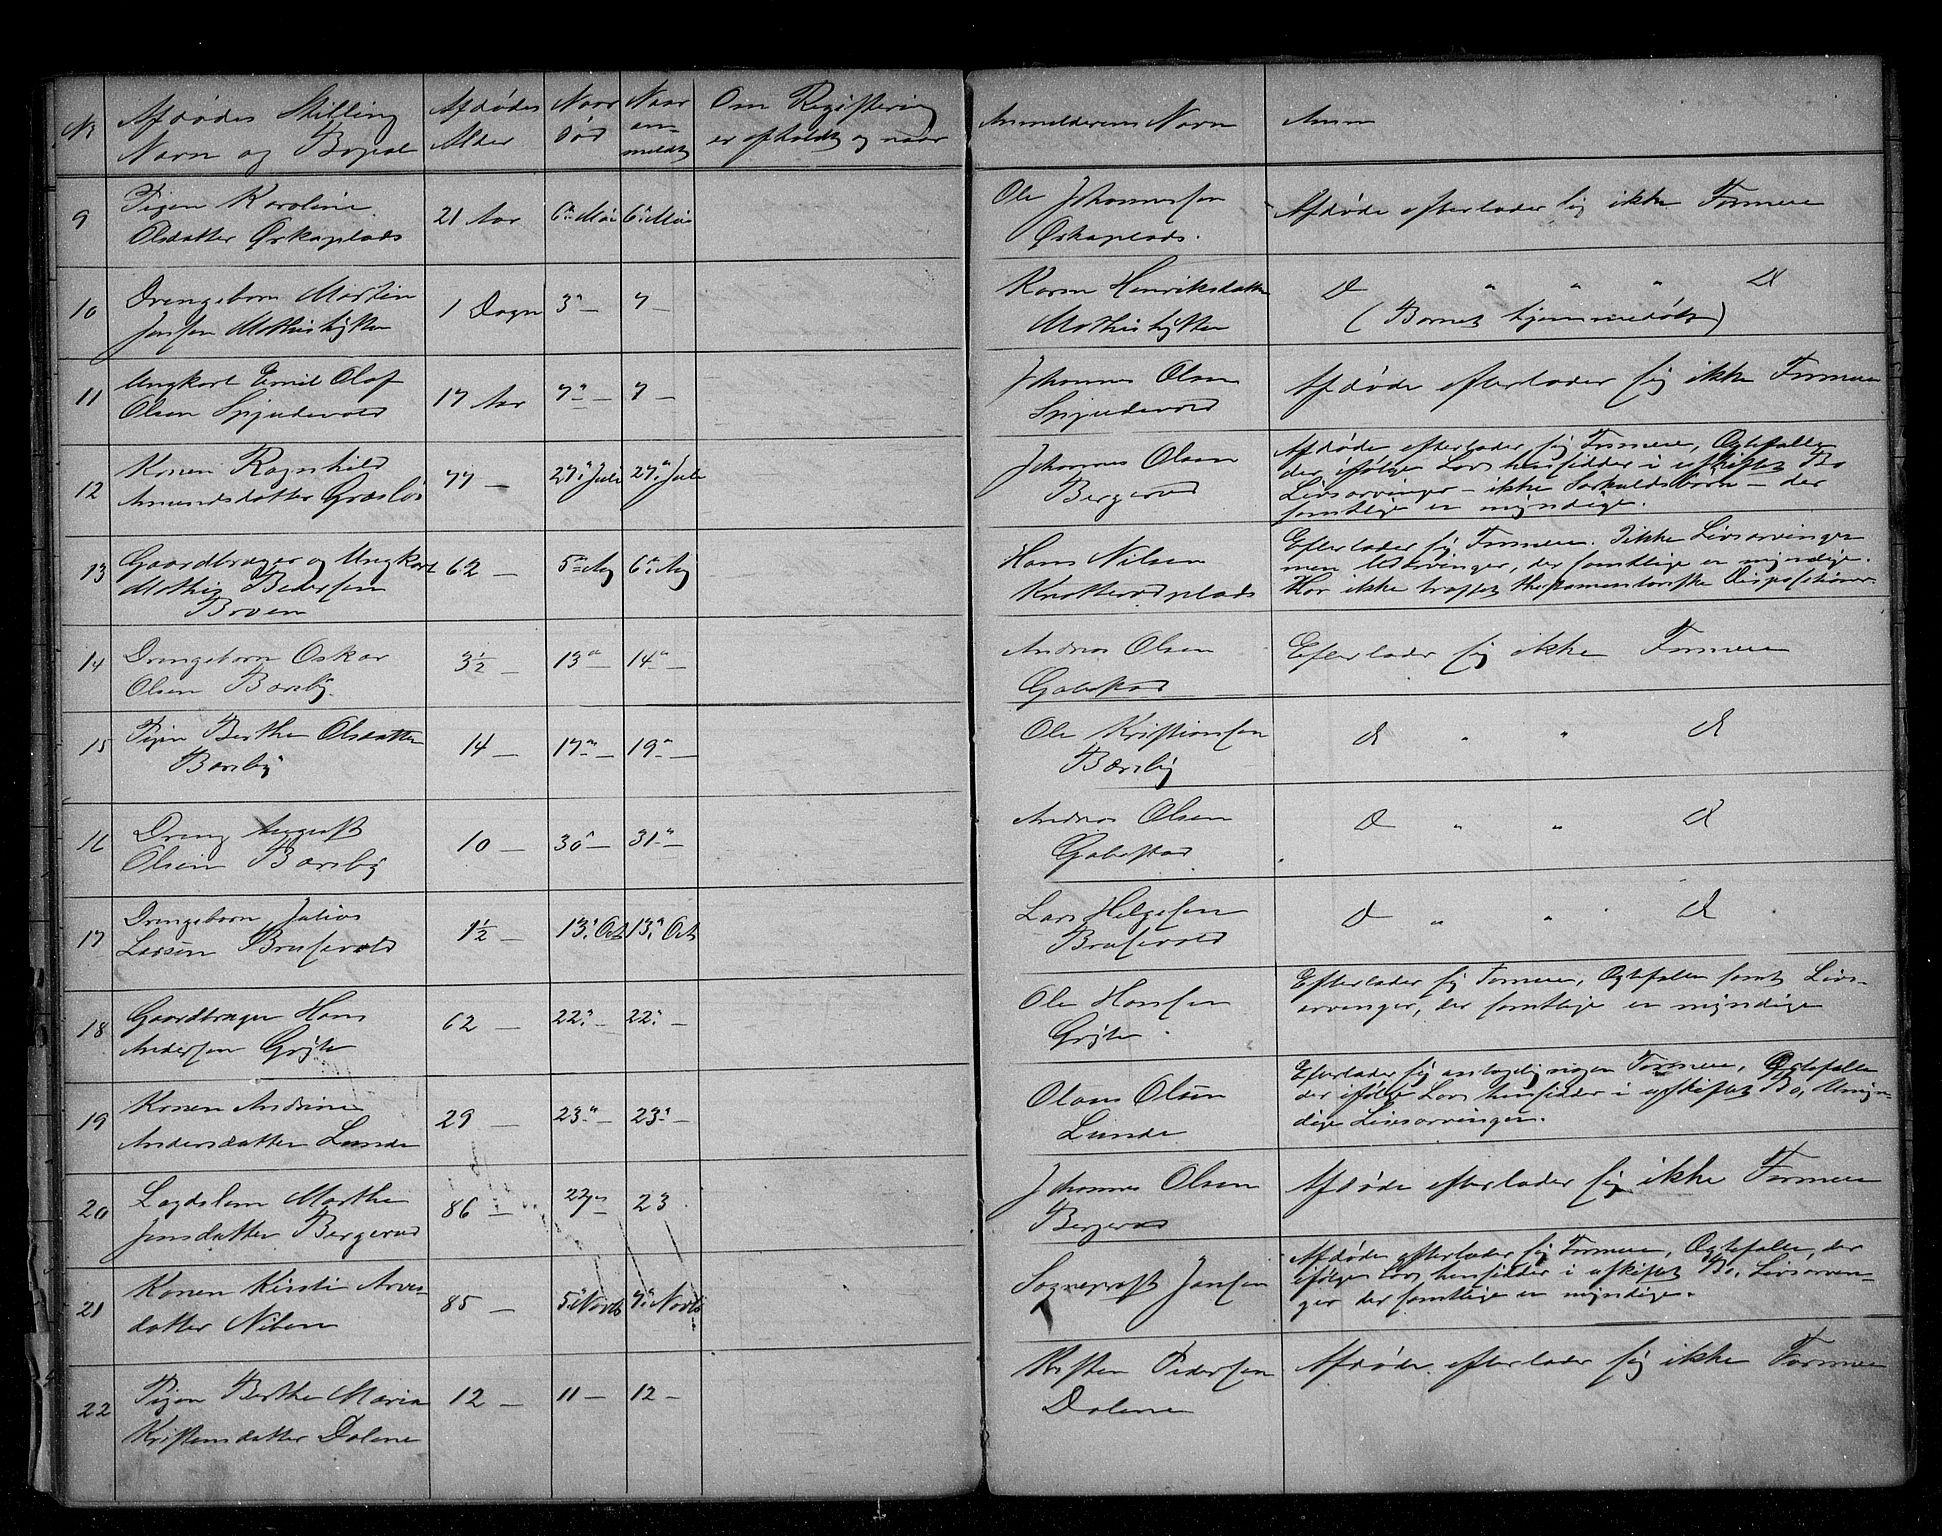 Nr
Afdødes Stilling
Navn og Bopæl
Afdødes
Alder
Naar
død
Naar
an-
meldt
Om Registrering
er afholdt og naar
Anmelderens Navn
Anm
9
Pigen Karoline
Olsdatter Ørkaplads
21 Aar
6te Mai
6te Mai
Ole Johannesen
Ørkaplads.
Afdøde efterlader sig ikke Formue
10
Drengebarn Martin
Jensen Mathishytten
1 Døgn
3 –
7 –
Karen Henriksdatter
Mathishytten
D " " " D
(Barnet hjemmedøbt)
11
Ungkarl Emil Olaf
Olsen Spjudevold
17 Aar
7 –
7 –
Johannes Olsen
Spjudevold
Afdøde efterlader sig ikke Formue
12
Konen Ragnhild
Amundsdatter Græsli
77 –
27. Juli
27. Juli
Johannes Olsen
Bergerud
Afdøde efterlader sig Formue, Ægtefælle
der ifølge Lov hensidder i uskiftet Bo
Livsarvinger – ikke Særkuldsbørn – der
samtlige er myndige.
13
Gaardbruger og Ungkarl
Mathis Pedersen
Braten
62 –
5te Aug
6te Aug
Hans Nilsen
Knatterudplads
Efterlader sig Formue. Ikke Livsarvinger
men Udarvinger, der samtlige er myndige.
Har ikke truffet thestamentariske Dispositioner
14
Drengebarn Oskar
Olsen Børsby.
3½ –
13 –
14 –
Andreas Olsen
Gabestad
Efterlader sig ikke Formue
15
Pigen Berthe Olsdatter
Børsby
14 –
17 –
19 –
Ole Kristiansen
Børsby
D " " D
16
Dreng August
Olsen Børsby
10 –
30 –
31 –
Andreas Olsen
Gabestad
D " " D
17
Drengebarn Julius
Larsen Brusevold
1½ –
13. Oct
13. Oct
Lars Helgesen
Brusevold
D " " D
18
Gaardbruger Hans
Andersen Grøjte
62 –
22. –
22. –
Ole Hansen
Grøjte
Efterlader sig Formue, Ægtefælle samt Livs-
arvinger, der samtlige er myndige
19
Konen Andrine
Andersdatter Lunde
29 –
23 –
23 –
Olaus Olsen
Lunde
Efterlader sig antagelig nogen Formue, Ægtefælle
der ifølge Lov hensidder i uskiftet Bo, Umyn-
dige Livsarvinger.
20
Lægdslem Marthe
Jensdatter Bergerud
86 –
22 –
23
Johannes Olsen
Bergerud
Afdøde efterlader sig ikke Formue
21
Konen Kirsti Arves
datter Niben
85 –
5. Novb
7. Novb
Sogneprest Jansen
Afdøde efterlader sig Formue, Ægtefælle, der
ifølge Lov hensidder i uskiftet Bo, Livsarvin-
ger der samtlige er myndige.
22
Pigen Berthe Maria
Kristensdatter Dalene
12 –
11 –
12 –
Kristen Pedersen
Dalene
Afdøde efterlader sig ikke Formue